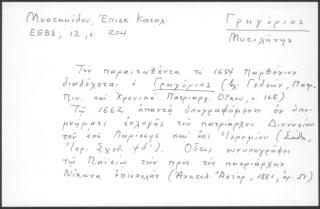 Μουστακίδου, Ἐπισκ. Κατάλ.
ΕΕΒΣ, 12, σ 204
Γρηγόριος
Μυτιλήνης
Τὸν παραιτηθέντα τὸ 1654 Παρθένιον
διαδέχεται ὁ Γρηγόριος (βλ. Γεδεών, Πατ.
Πιν. καὶ Χρονικὰ Πατριαρχ. Οἴκου, σ. 168).
Τῷ 1662 ἀπαντᾷ ὑπογραφόμενος ἐν ὑπο-
μνήματι ἐκλογῆς τοῦ πατριάρχου Διονυσίου
τοῦ ἀπὸ Λαρίσσης καὶ ἐπὶ Ἱερεμίου (Σάθα,
Ἱερ. Σχεδ. ψδ΄). Οὗτος συνυπογράφει
τῷ Παϊσίῳ τὴν πρὸς τὸν πατριάρχην
Νίκωνα ἐπιστολὴν (Ἀνατολ. Ἀστήρ, 1881, ἀρ. 51)